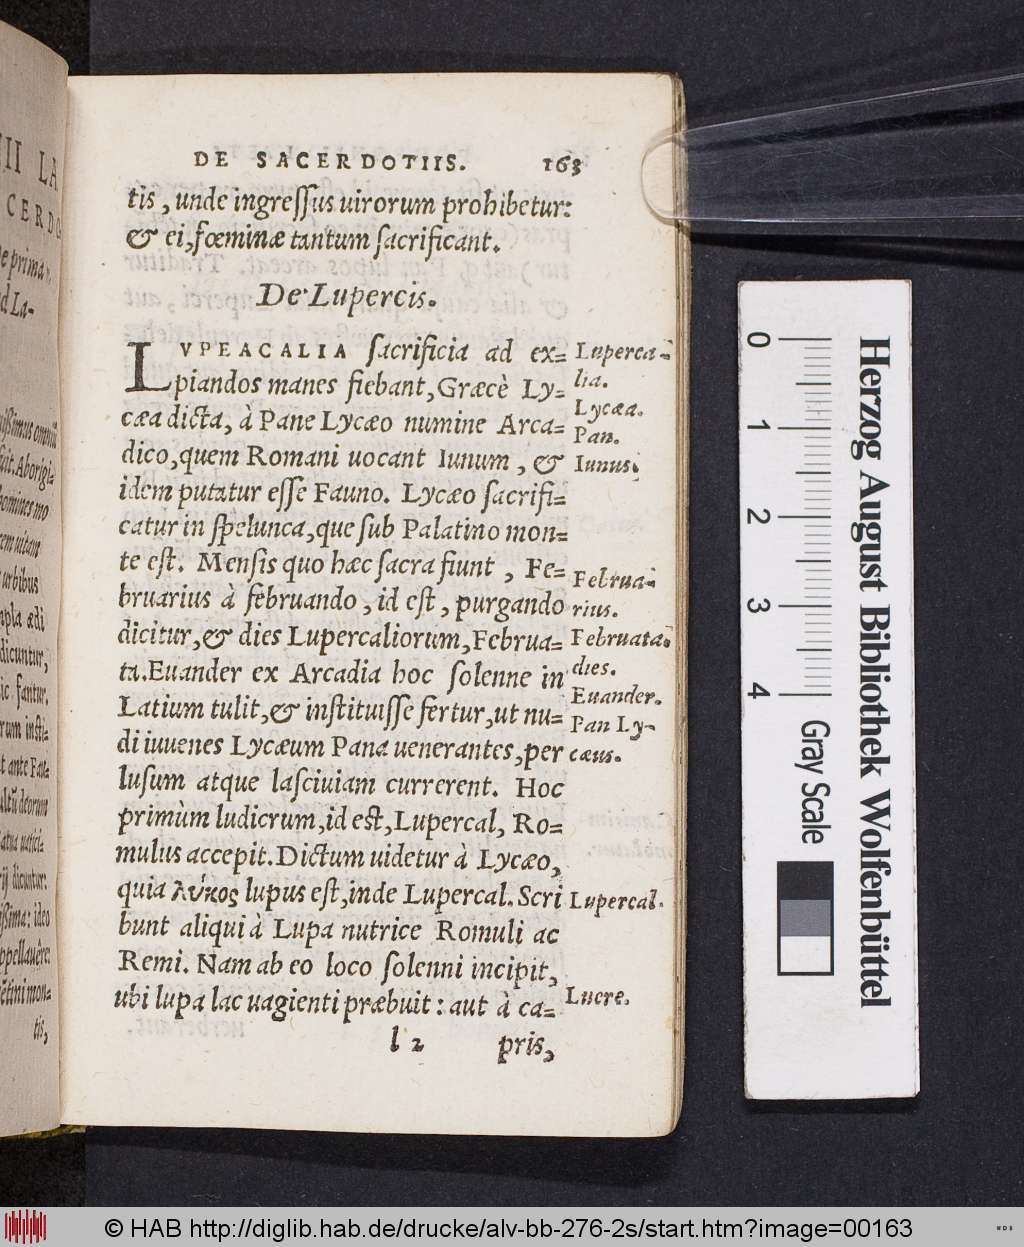 DE SACERDOTIIS. 163
tis, unde ingressus uirorum prohibetur:
& ei, fœminæ tantum sacrificant.
De Lupercis.
LVPEACALIA sacrificia ad ex=
piandos manes fiebant, Græcè Ly=
cæa dicta, à Pane Lycæo numine Arca=
dico, quem Romani uocant Iunum, &
idem putatur esse Fauno. Lycæo sacrifi=
catur in spelunca, que sub Palatino mon=
te est. Mensis quo hæc sacra fiunt, Fe=
bruarius à februando, id est, purgando
dicitur, & dies Lupercaliorum, Februa=
ta. Euander ex Arcadia hoc solenne in
Latium tulit, & instituisse fertur, ut nu=
di iuuenes Lycæum Pana uenerantes, per
lusum atque lasciuiam currerent. Hoc
primùm ludicrum, id est, Lupercal, Ro=
mulus accepit. Dictum uidetur à Lycæo,
quia λύκος lupus est, inde Lupercal. Scri
bunt aliqui à Lupa nutrice Romuli ac
Remi. Nam ab eo loco solenni incipit,
ubi lupa lac uagienti præbuit: aut à ca=
l 2 pris,
Luperca-
lia.
Lycæa.
Pan.
Iunus.
Februa-
rius.
Februata
dies.
Euander.
Pan Ly-
cæus.
Lupercal.
Luere.
II LA
CERDO
e prima
d La-
Aborigi-
homines mo
urbibus
ædi
dicuntur,
ic fantur.
rum insti-
t ante Fau=
deorum
dicuntur:
ideo
mon=
tis,
0 1 2 3 4
Gray Scale
Herzog August Bibliothek Wolfenbüttel
© HAB http://diglib.hab.de/drucke/alv-bb-276-2s/start.htm?image=00163
WDB